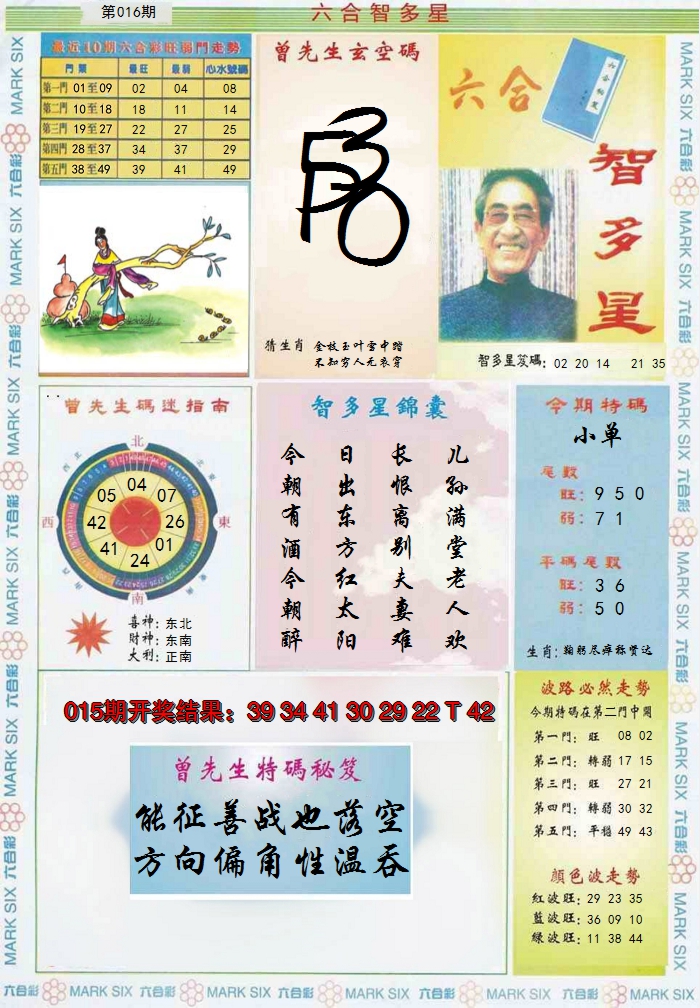 第016期
六合智多星
最近10期六合彩旺弱門走勢
門票 最旺 最弱 心水號碼
第一門 01至09 02 04 08
第二門 10至18 18 11 14
第三門 19至27 22 27 25
第四門 28至37 34 37 29
第五門 38至49 39 41 49
曾先生玄空碼
猜生肖 金枝玉叶雪中踏
不知穷人无衣穿
六合
六合秘笈
智多星
智多星笈碼: 02 20 14 21 35
曾先生碼迷指南
北
西
東
南
05 04 07
42 26
41 24 01
喜神: 东北
财神: 东南
大利: 正南
智多星錦囊
今朝有酒今朝醉
日出东方红太阳
长恨离别夫妻难
儿孙满堂老人欢
今期特碼
小单
尾數
旺: 9 5 0
弱: 7 1
平碼尾數
旺: 3 6
弱: 5 0
生肖: 鞠躬尽瘁称贤达
015期开奖结果: 39 34 41 30 29 22 T 42
曾先生特碼秘笈
能征善战也落空
方向偏角性温吞
波路必然走勢
今期特碼在第二門中開
第一門: 旺 08 02
第二門: 轉弱 17 15
第三門: 旺 27 21
第四門: 轉弱 30 32
第五門: 平穩 49 43
顏色波走勢
紅波旺: 29 23 35
藍波旺: 36 09 10
綠波旺: 11 38 44
MARK SIX 六合彩 MARK SIX 六合彩 MARK SIX 六合彩 MARK SIX 六合彩